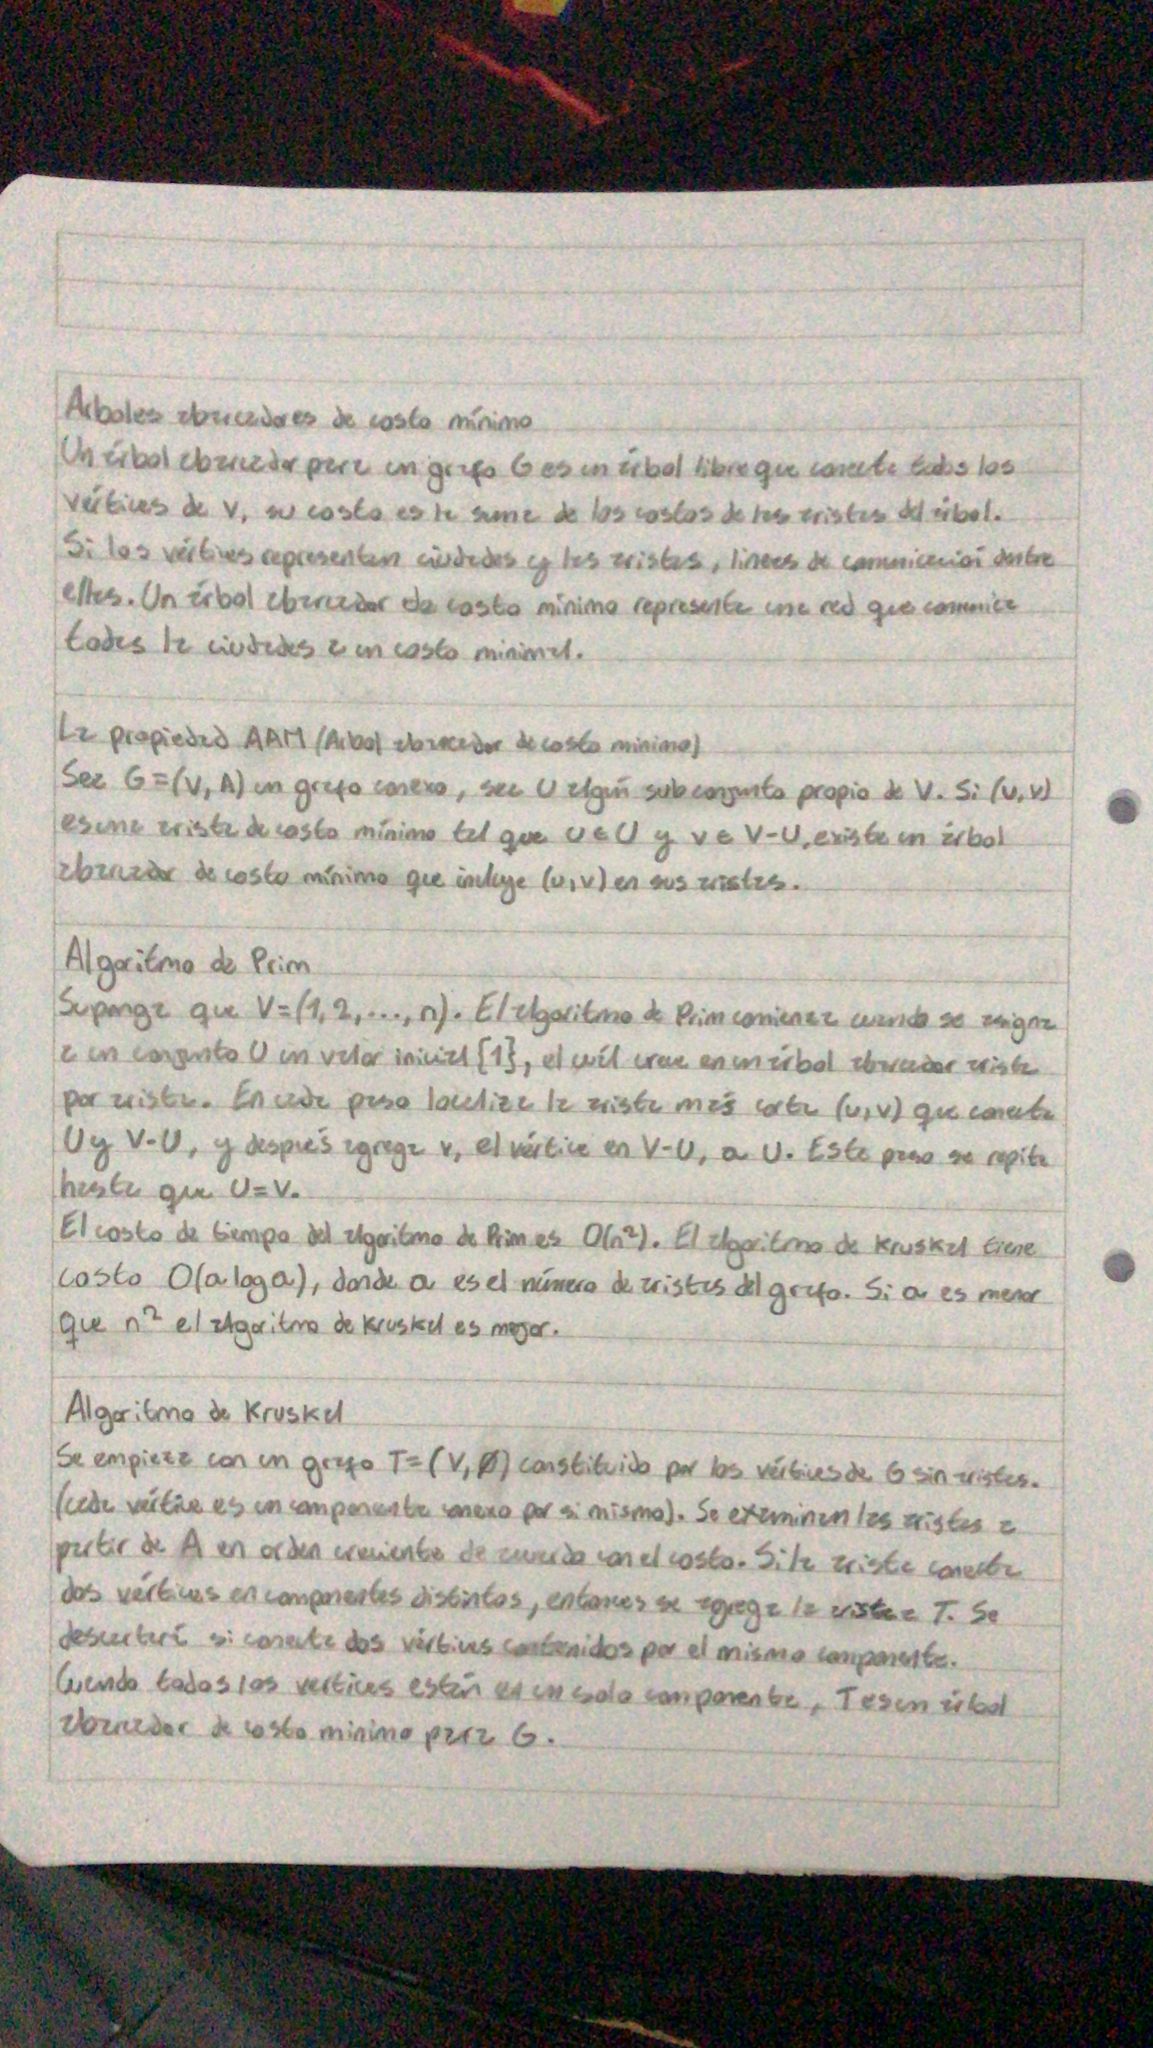 Arboles abarcadores de costo mínimo
Un árbol abarcador para un grafo G es un árbol libre que conecta todos los
vértices de V, su costo es la suma de los costos de las aristas del árbol.
Si los vértices representan ciudades y las aristas, lineas de comunicación dentre
ellas. Un árbol abarcador de costo mínimo representa una red que comunica
todas la ciudades a un costo minimal.
La propiedad AAM (Arbol abarcador de costo minimo)
Sea G=(V, A) un grafo conexo, sea U algún subconjunto propio de V. Si (u,v)
es una arista de costo mínimo tal que u∈U y v∈V-U, existe un árbol
abarcador de costo mínimo que incluye (u,v) en sus aristas.
Algoritmo de Prim
Suponga que V=(1,2,...,n). El algoritmo de Prim comienza cuando se asigna
a un conjunto U un valor inicial {1}, el cuál crece en un árbol abarcador arista
por arista. En cada paso localiza la arista más corta (u,v) que conecta
U y V-U, y después agrega v, el vértice en V-U, a U. Este paso se repite
hasta que U=V.
El costo de tiempo del algoritmo de Prim es O(n²). El algoritmo de Kruskal tiene
costo O(a log a), donde a es el número de aristas del grafo. Si a es menor
que n² el algoritmo de Kruskal es mejor.
Algoritmo de Kruskal
Se empieza con un grafo T=(V,Ø) constituido por los vértices de G sin aristas.
(cada vértice es un componente conexo por si mismo). Se examinan las aristas a
partir de A en orden creciente de acuerdo con el costo. Si la arista conecta
dos vértices en componentes distintos, entonces se agrega la arista a T. Se
descartará si conecta dos vértices contenidos por el mismo componente.
Cuando todos los vertices están en un solo componente, T es un árbol
abarcador de costo minimo para G.